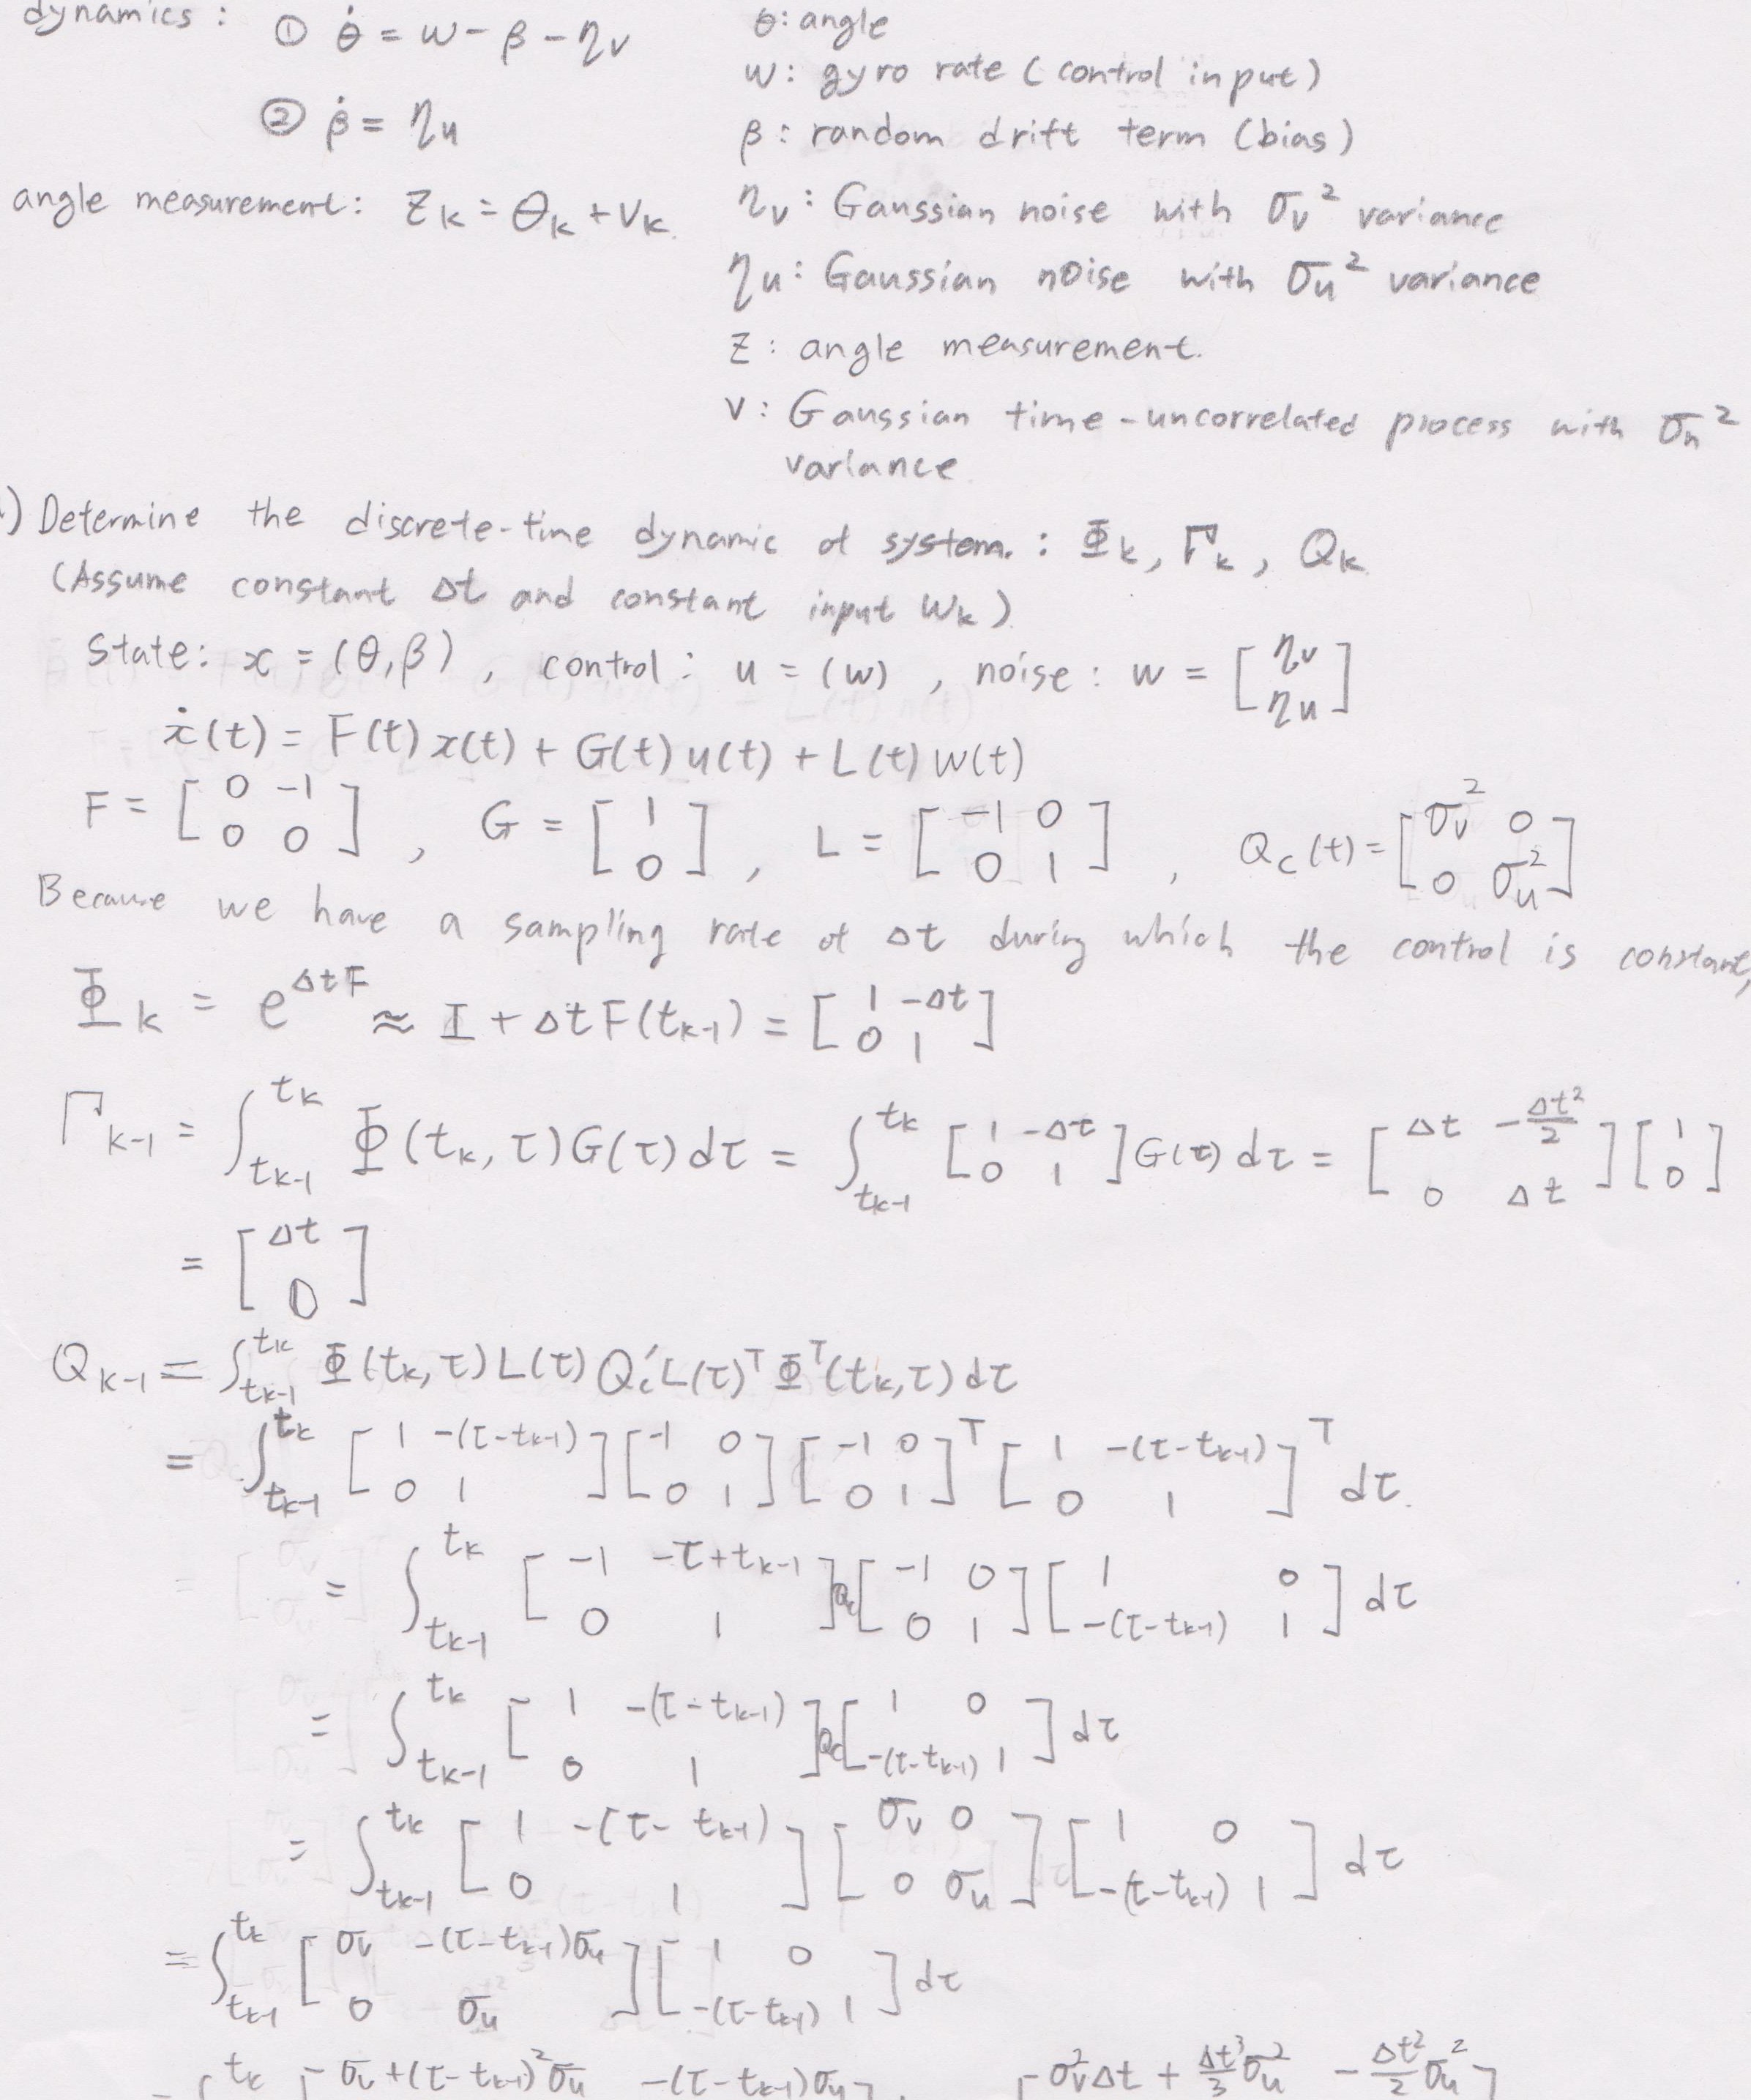 dynamics : ① θ̇ = w - β - η_v
② β̇ = η_u
angle measurement: z_k = θ_k + v_k.
θ: angle
w: gyro rate (control input)
β: random drift term (bias)
η_v: Gaussian noise with σ_v² variance
η_u: Gaussian noise with σ_u² variance
z: angle measurement.
v: Gaussian time-uncorrelated process with σ_n²
variance.
) Determine the discrete-time dynamic of system. : Φ_k, Γ_k, Q_k.
(Assume constant Δt and constant input w_k).
state: x = (θ, β), control: u = (w), noise: w = [η_v; η_u]
ẋ(t) = F(t)x(t) + G(t)u(t) + L(t)w(t)
F = [0 -1; 0 0], G = [1; 0], L = [-1 0; 0 1], Q_c(t) = [σ_v² 0; 0 σ_u²]
Because we have a sampling rate of Δt during which the control is constant,
Φ_k = e^{ΔtF} ≈ I + ΔtF(t_{k-1}) = [1 -Δt; 0 1]
Γ_{k-1} = ∫_{t_{k-1}}^{t_k} Φ(t_k, τ)G(τ)dτ = ∫_{t_{k-1}}^{t_k} [1 -Δτ; 0 1]G(τ)dτ = [Δt -Δt²/2; 0 Δt][1; 0]
= [Δt; 0]
Q_{k-1} = ∫_{t_{k-1}}^{t_k} Φ(t_k, τ)L(τ)Q_c'L(τ)^TΦ^T(t_k, τ)dτ
= ∫_{t_{k-1}}^{t_k} [1 -(τ-t_{k-1}); 0 1][-1 0; 0 1][-1 0; 0 1]^T[1 -(τ-t_{k-1}); 0 1]^T dτ.
= ∫_{t_{k-1}}^{t_k} [-1 -τ+t_{k-1}; 0 1]Q_c[-1 0; 0 1][1 0; -(τ-t_{k-1}) 1]dτ
= ∫_{t_{k-1}}^{t_k} [1 -(τ-t_{k-1}); 0 1]Q_c[1 0; -(τ-t_{k-1}) 1]dτ
= ∫_{t_{k-1}}^{t_k} [1 -(τ-t_{k-1}); 0 1][σ_v 0; 0 σ_u][1 0; -(τ-t_{k-1}) 1]dτ
= ∫_{t_{k-1}}^{t_k} [σ_v -(τ-t_{k-1})σ_u; 0 σ_u][1 0; -(τ-t_{k-1}) 1]dτ
t_k σ_v+(τ-t_{k-1})²σ_u -(τ-t_{k-1})σ_u σ_v²Δt + Δt³/3 σ_u² -Δt²/2 σ_u²